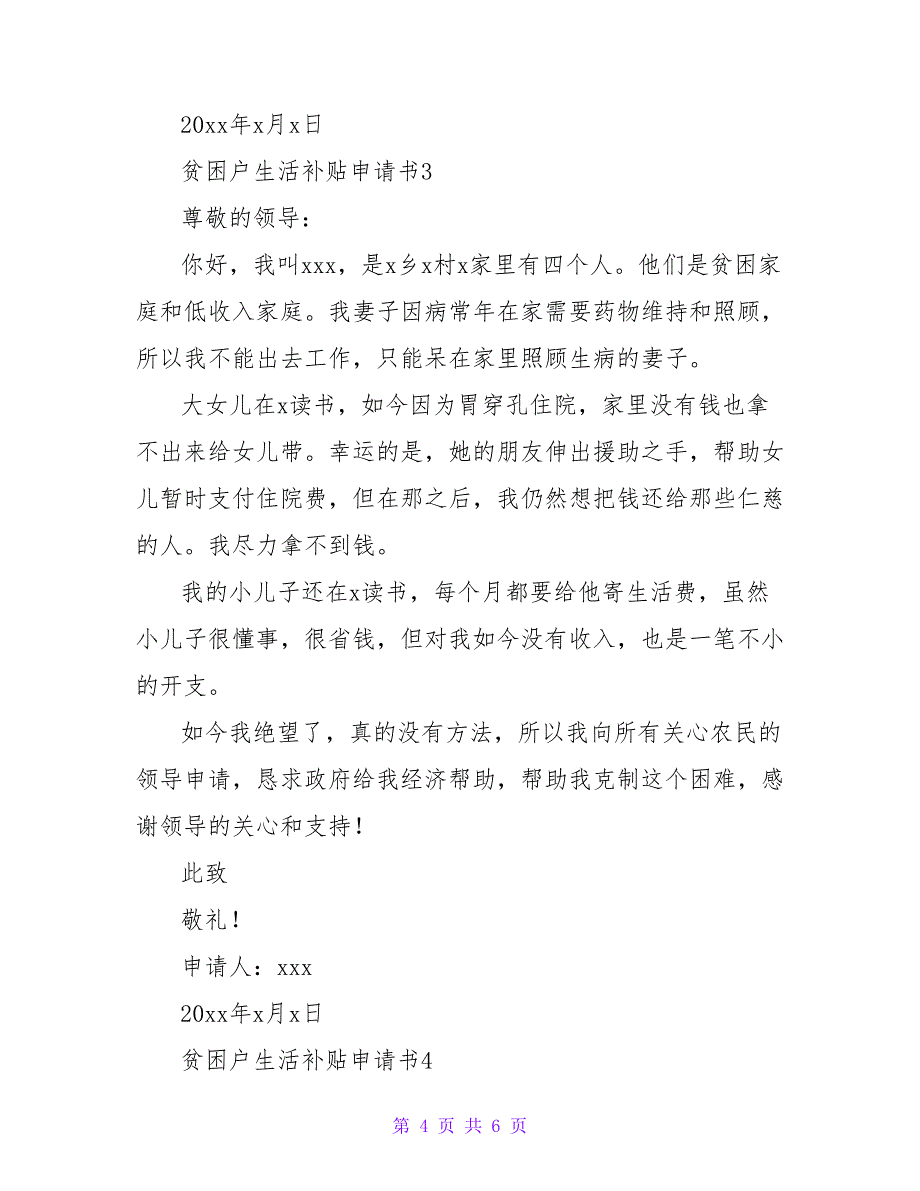 20xx年x月x日
贫困户生活补贴申请书3
尊敬的领导：
你好，我叫xxx，是x乡x村x家里有四个人。他们是贫困家
庭和低收入家庭。我妻子因病常年在家需要药物维持和照顾，
所以我不能出去工作，只能呆在家里照顾生病的妻子。
大女儿在x读书，如今因为胃穿孔住院，家里没有钱也拿
不出来给女儿带。幸运的是，她的朋友伸出援助之手，帮助女
儿暂时支付住院费，但在那之后，我仍然想把钱还给那些仁慈
的人。我尽力拿不到钱。
我的小儿子还在x读书，每个月都要给他寄生活费，虽然
小儿子很懂事，很省钱，但对我如今没有收入，也是一笔不小
的开支。
如今我绝望了，真的没有方法，所以我向所有关心农民的
领导申请，恳求政府给我经济帮助，帮助我克制这个困难，感
谢领导的关心和支持！
此致
敬礼！
申请人：xxx
20xx年x月x日
贫困户生活补贴申请书4
第 4 页 共 6 页